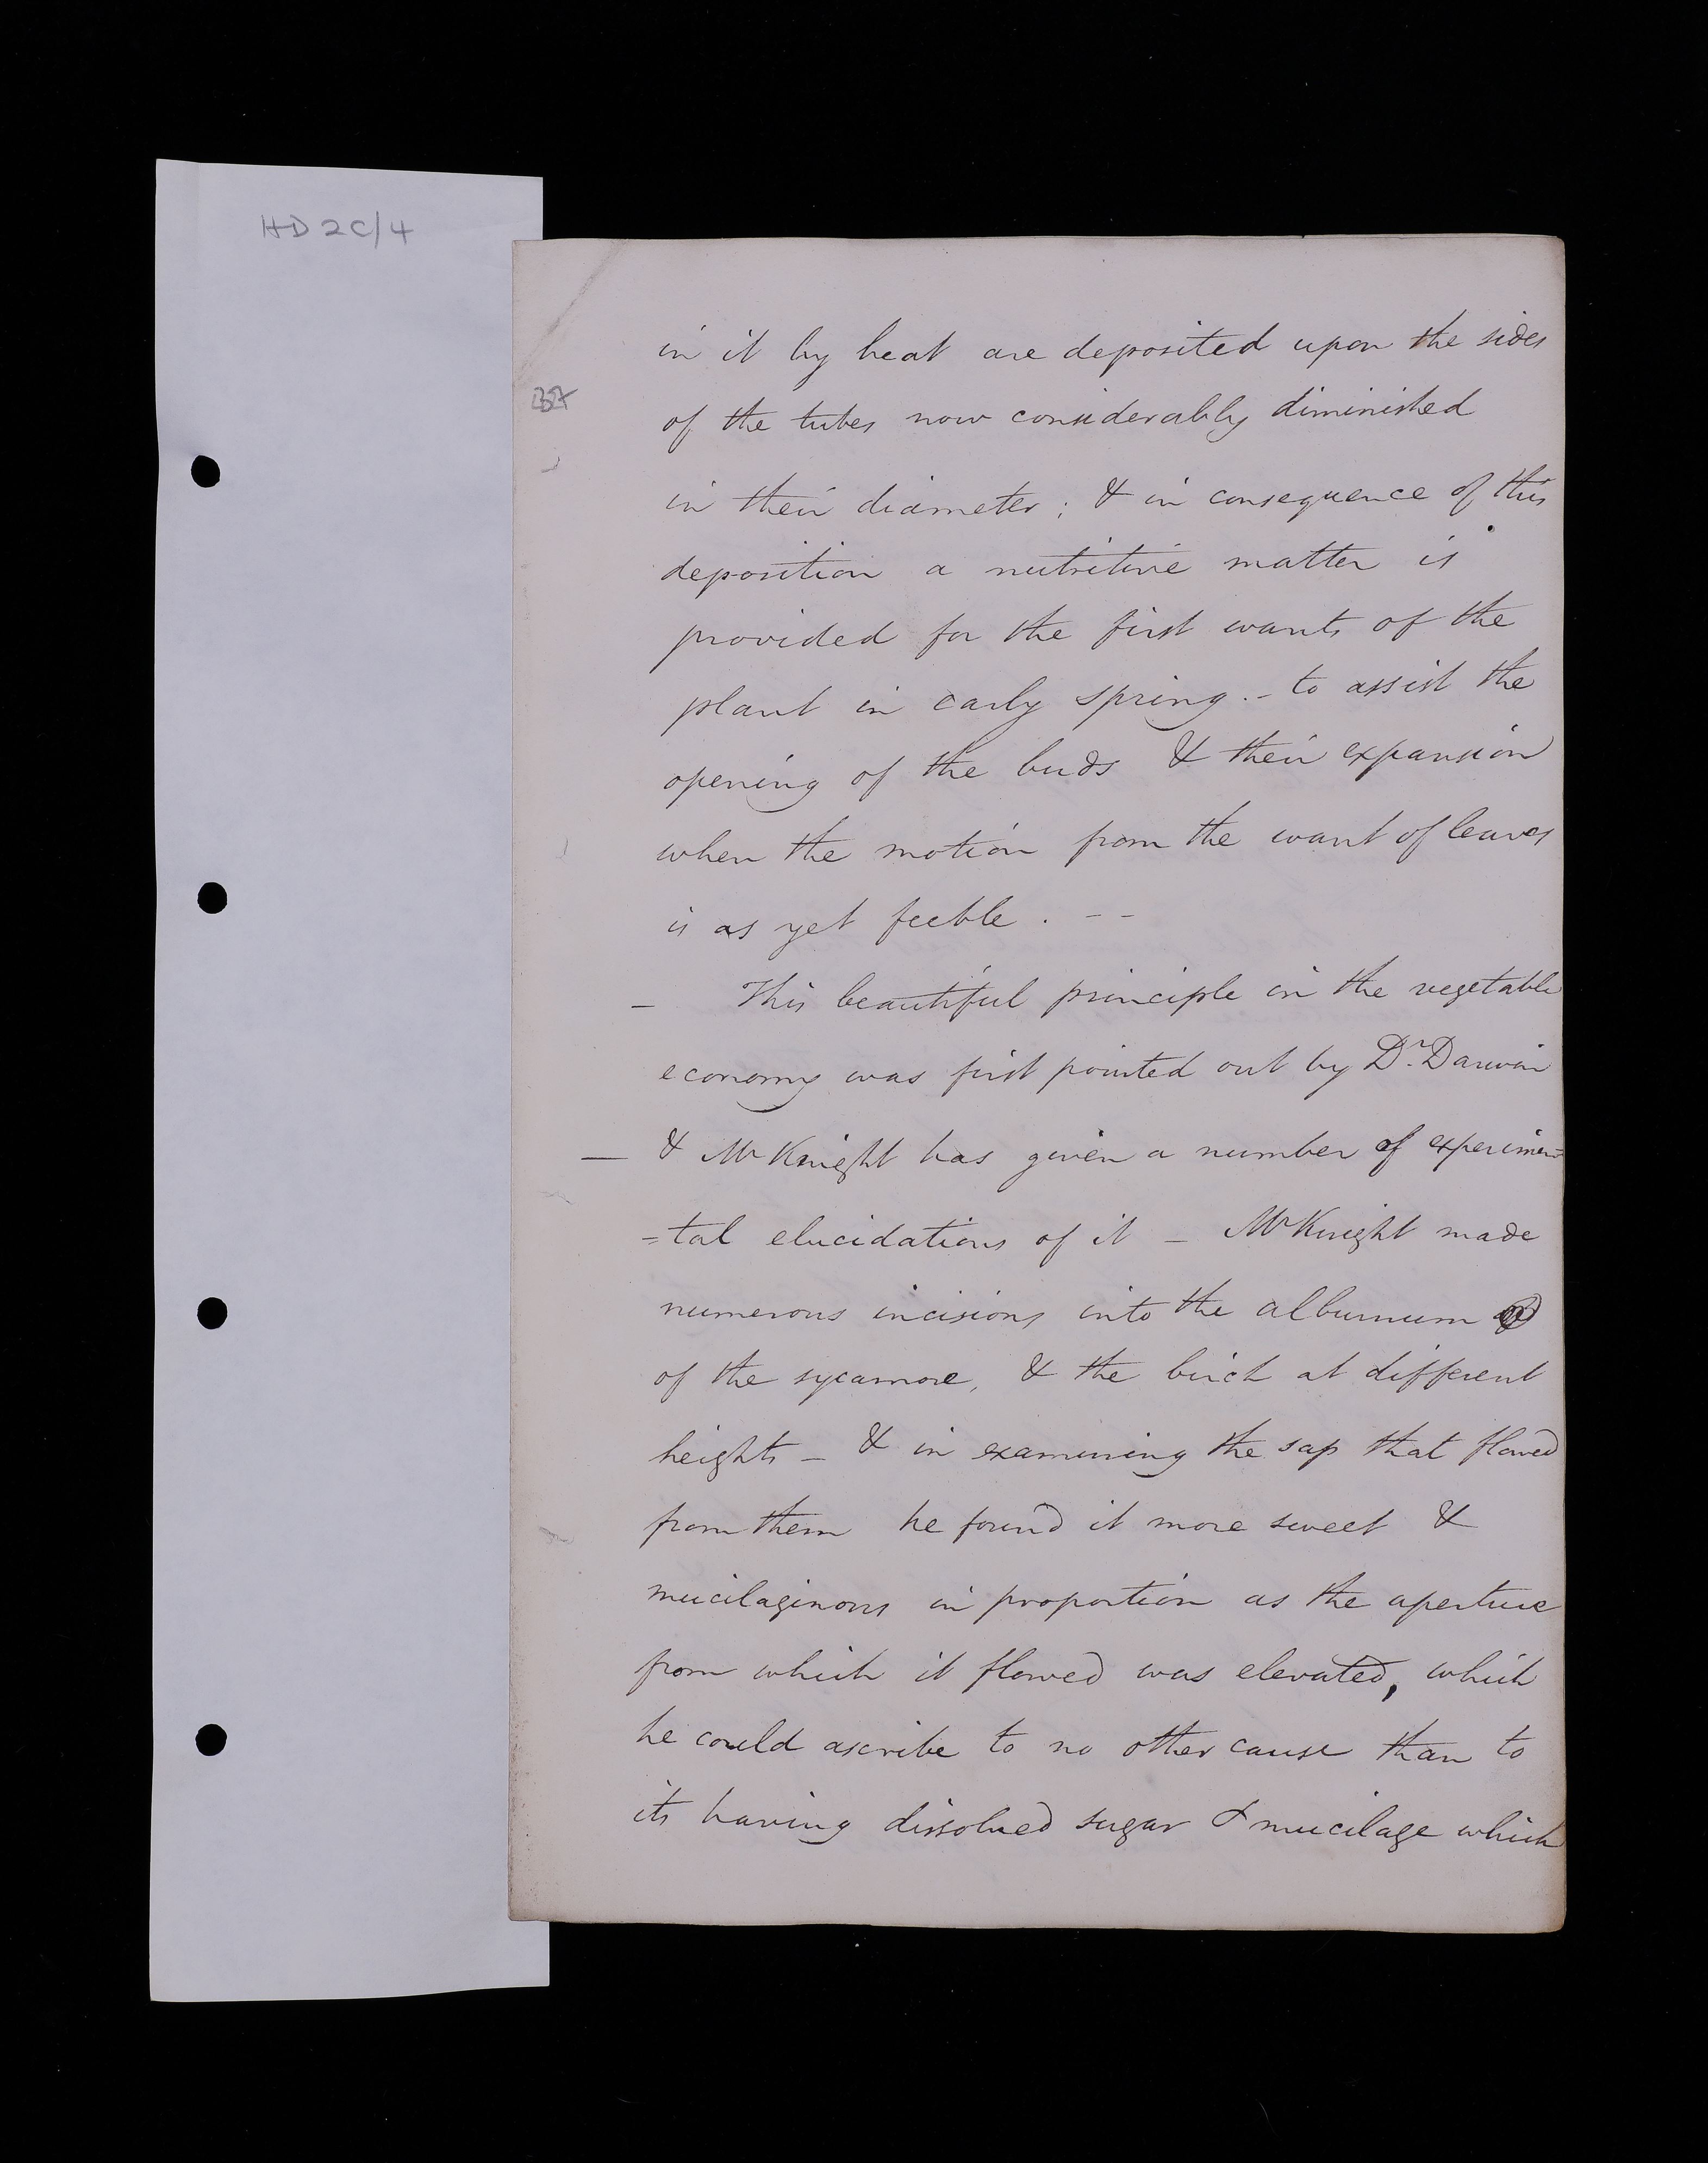 HD 2C/4
in it by heat are deposited upon the sides
of the tubes now considerably diminished
in their diameter; & in consequence of this
deposition a nutritive matter is
provided for the first wants of the
plant in early spring. - to assist the
opening of the buds & their expansion
when the motion from the want of leaves
is as yet feeble . - -
- This beautiful principle in the vegetable
economy was first pointed out by Dr. Darwin
- & Mr Knight has given a number of experimen
=tal elucidations of it - Mr Knight made
numerous incisions into the alburnum
of the sycamore, & the birch at different
heights - & in examining the sap that flowed
from them he found it more sweet &
mucilaginous in proportion as the aperture
from which it flowed was elevated, which
he could ascribe to no other cause than to
its having dissolved sugar & mucilage which